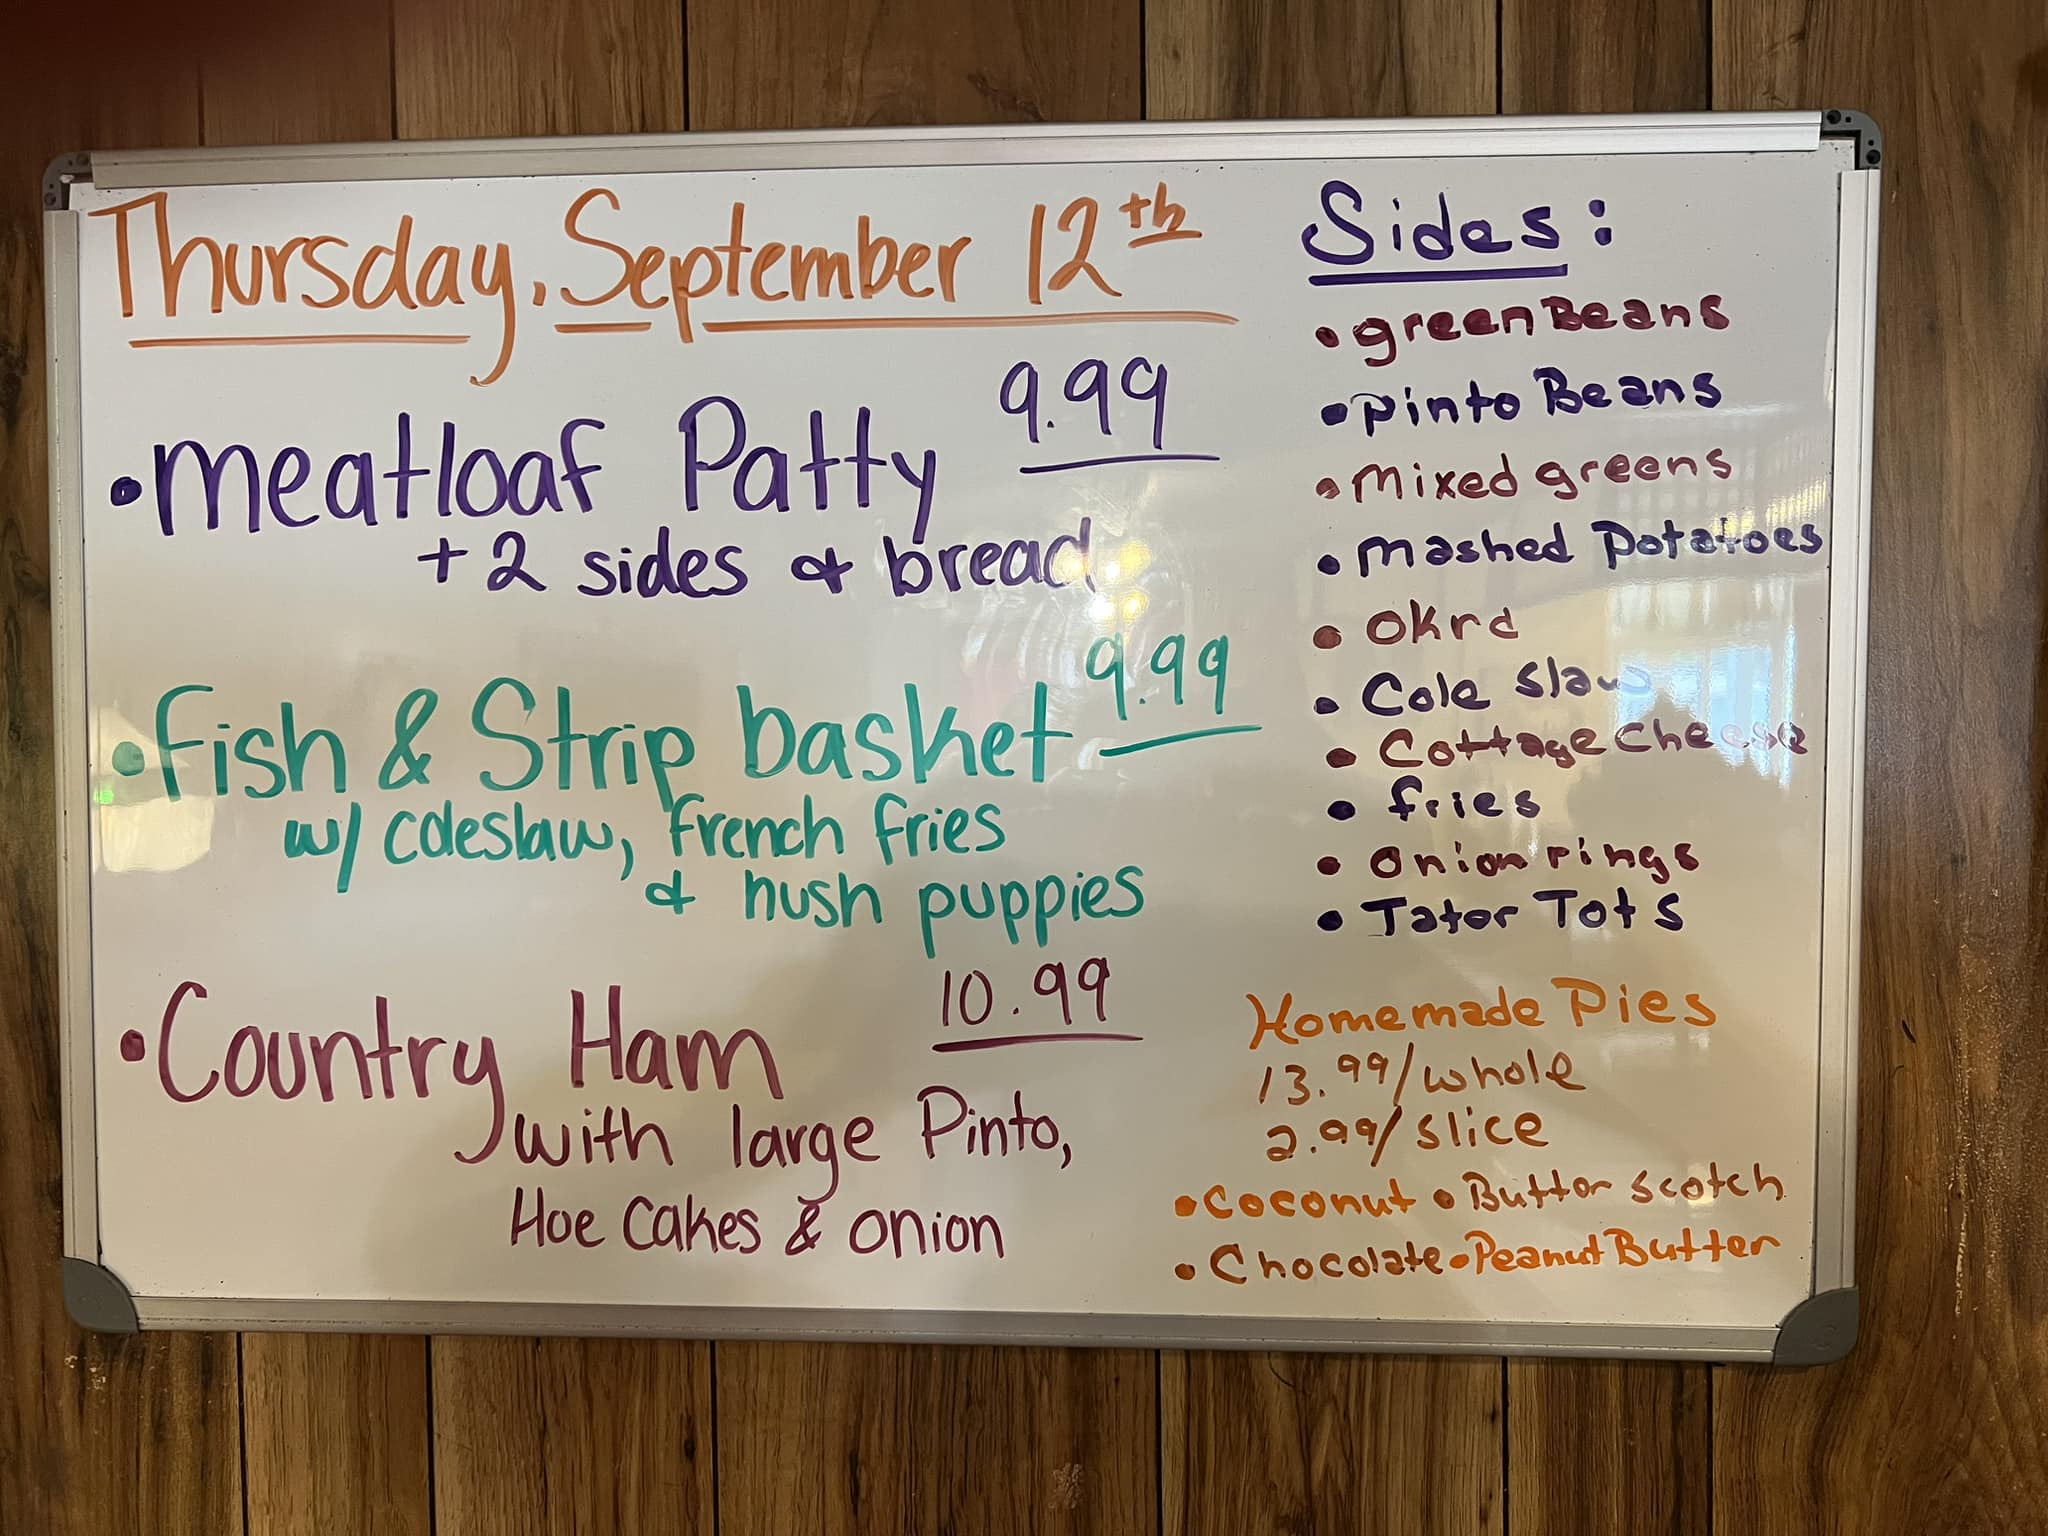 Thursday, September 12th
• Meatloaf Patty 9.99
+ 2 sides & bread
• Fish & Strip basket 9.99
w/ coleslaw, French Fries
& hush puppies
• Country Ham 10.99
with large Pinto,
Hoe Cakes & onion
Sides:
• green Beans
• Pinto Beans
• Mixed greens
• Mashed Potatoes
• Okra
• Cole slaw
• Cottage Cheese
• fries
• Onion rings
• Tator Tots
Homemade Pies
13.99/whole
2.99/slice
• Coconut • Butter scotch
• Chocolate • Peanut Butter